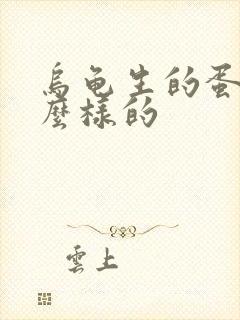 烏龜生的蛋
麼樣的
雲上